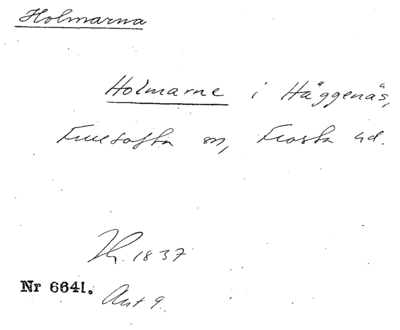 Holmarna
Holmarne i Häggenäs,
Fulltofta sn, Frosta hd.
1837
Nr 6641.
Akt 9.